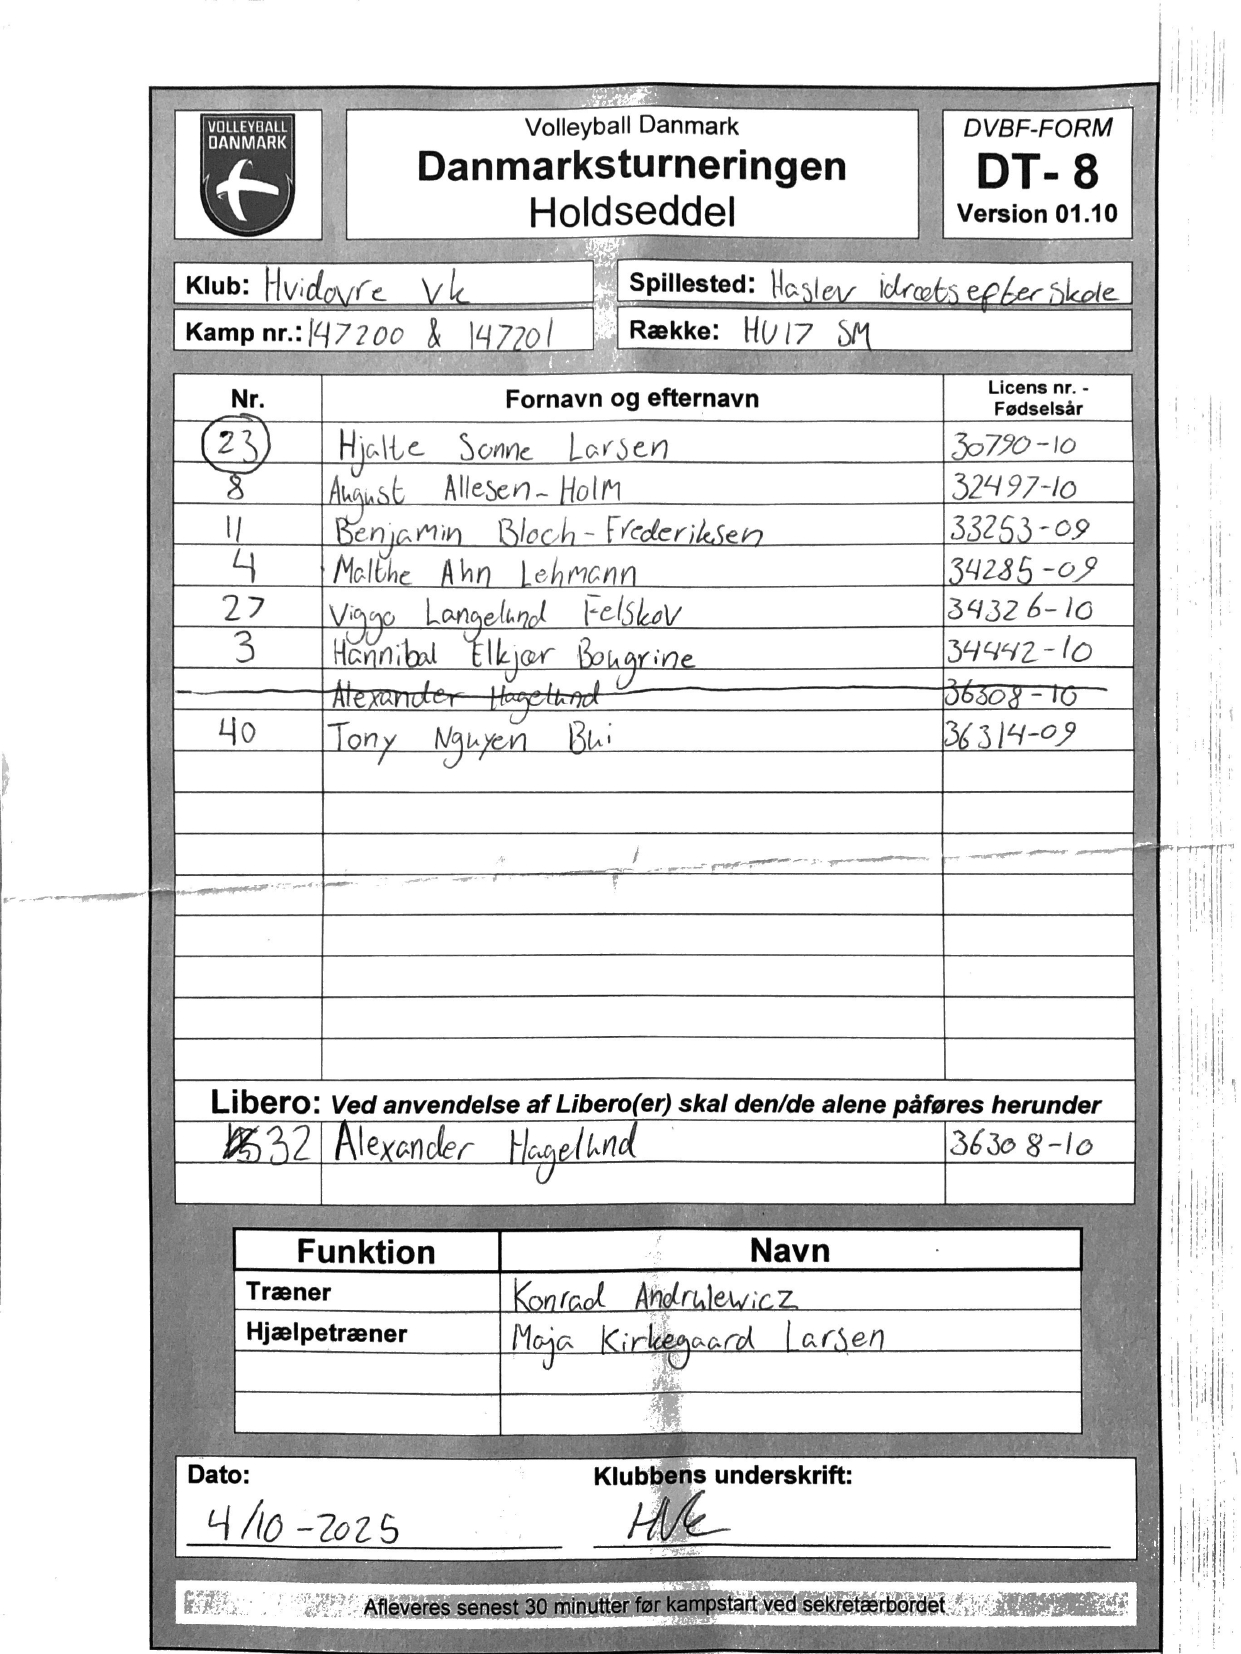 VOLLEYBALL
DANMARK
Volleyball Danmark
Danmarksturneringen
Holdseddel
DVBF-FORM
DT- 8
Version 01.10
Klub: Hvidovre Vk
Spillested: Haslev idrætsefterskole
Kamp nr.: 147200 & 147201
Række: HU17 SM
Nr. Fornavn og efternavn Licens nr. - Fødselsår
23 Hjalte Sonne Larsen 30790-10
8 August Allesen-Holm 32497-10
11 Benjamin Bloch-Frederiksen 33253-09
4 Malthe Ahn Lehmann 34285-09
27 Viggo Langelund Felskov 34326-10
3 Hannibal Elkjær Bougrine 34442-10
Alexander Hagelund 36308-10
40 Tony Nguyen Bui 36314-09
Libero: Ved anvendelse af Libero(er) skal den/de alene påføres herunder
32 Alexander Hagelund 36308-10
Funktion Navn
Træner Konrad Andrulewicz
Hjælpetræner Maja Kirkegaard Larsen
Dato: Klubbens underskrift:
4/10-2025 HVk
Afleveres senest 30 minutter før kampstart ved sekretærbordet